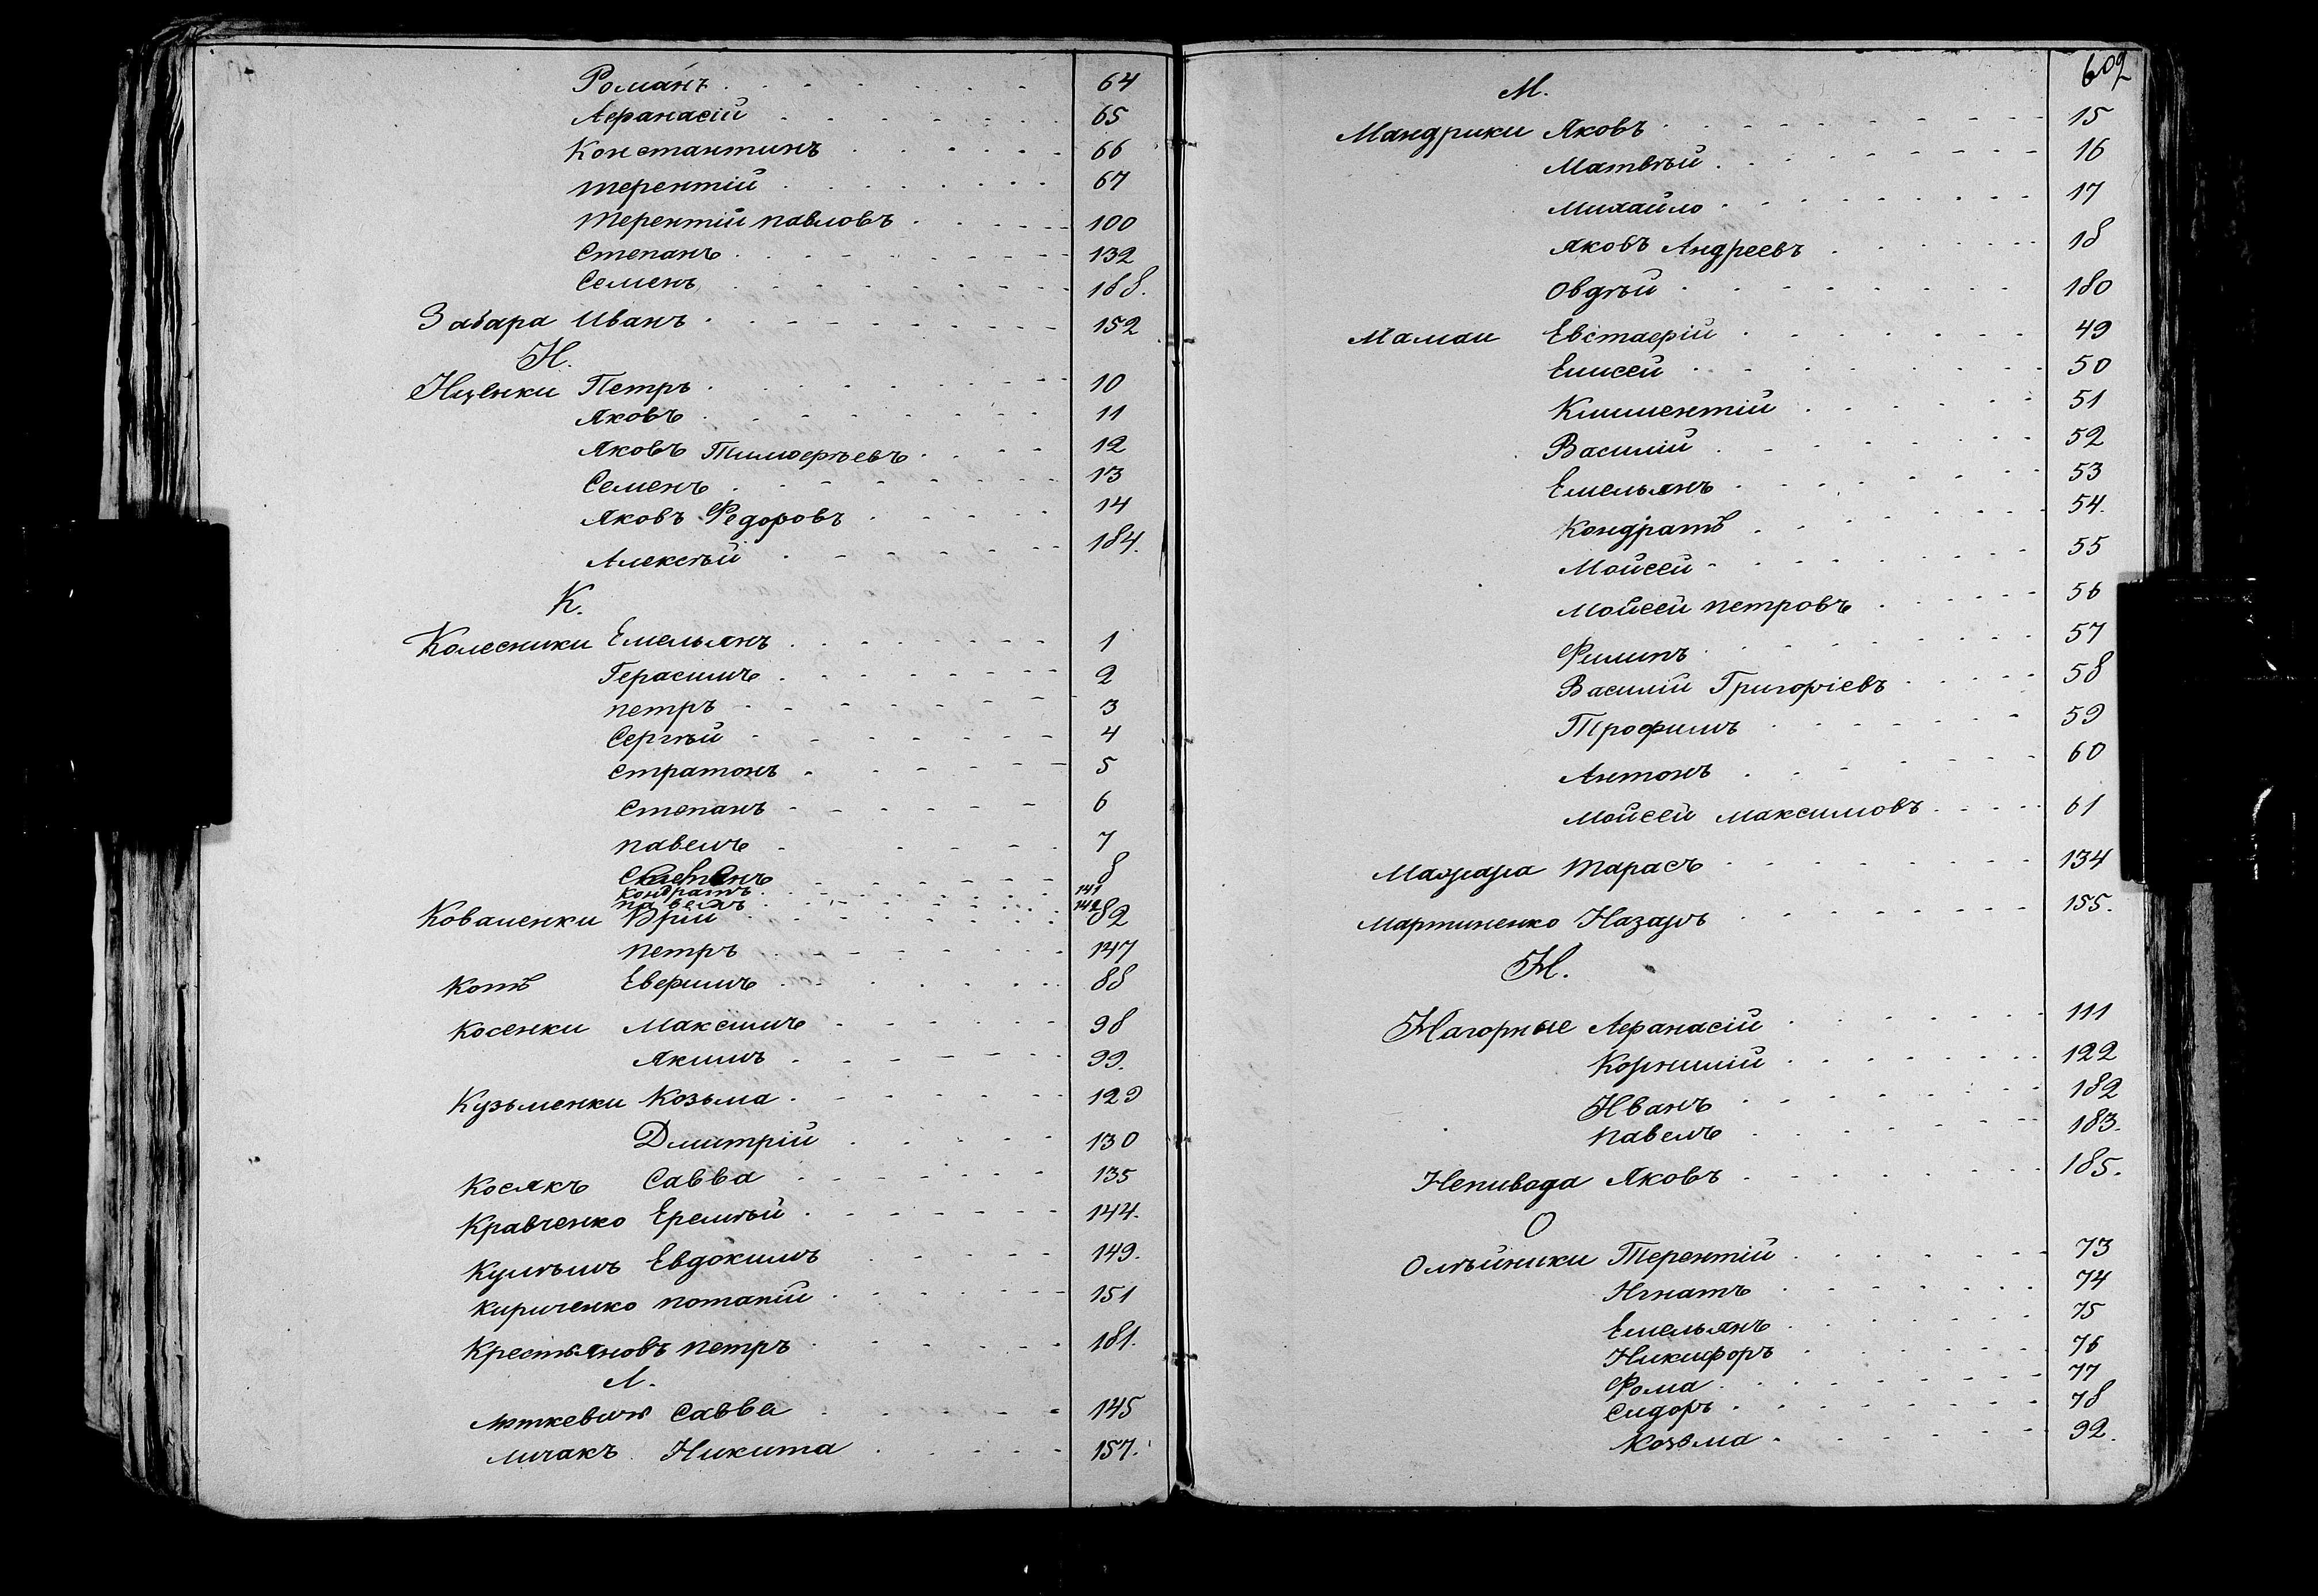 Романъ 64
Афанасій 65
Константинъ 66
Терентій 67
Терентій Павловъ 100
Степанъ 132
Семенъ 168.
Забара Иванъ 152
И.
Ищенки Петръ 10
Яковъ 11
Яковъ Тимофѣевъ 12
Семенъ 13
Яковъ Федоровъ 14
Алексѣй 184.
К.
Колесники Емельянъ 1
Герасимъ 2
Петръ 3
Сергѣй 4
Стратонъ 5
Степанъ 6
Павелъ 7
8
Кондратъ 141
Павелъ 142
Коваленки Юрій 82
Петръ 147
Котъ Евфимъ 88
Косенки Максимъ 98
Якимъ 99.
Кузьменки Козьма 129
Дмитрій 130
Косякъ Савва 135
Кравченко Еремѣй 144.
Кулѣшъ Евдокимъ 149.
Кириченко Потапій 151
Крестьяновъ Петръ 181.
Л.
Савва 145
Личакъ Никита 157.
602
М.
Мандрики Яковъ 15
Матвѣй 16
Михайло 17
Яковъ Андреевъ 18
Овдѣй 180
Мамаи Евстафій 49
Елисей 50
Климентій 51
Василій 52
Емельянъ 53
Кондратъ 54.
Мойсей 55
Мойсей Петровъ 56
Филипъ 57
Василій Григоріевъ 58
Трофимъ 59
Антонъ 60
Мойсей Максимовъ 61
Мажара Тарасъ 134
Мартиненко Назаръ 155.
Н.
Нагорные Афанасій 111
Корнилій 122
Иванъ 182
Павелъ 183.
Непивода Яковъ 185.
О
Олѣйники Терентій 73
Игнатъ 74
Емельянъ 75
Никифоръ 76
Фома 77
Сидоръ 78
Козьма 92.